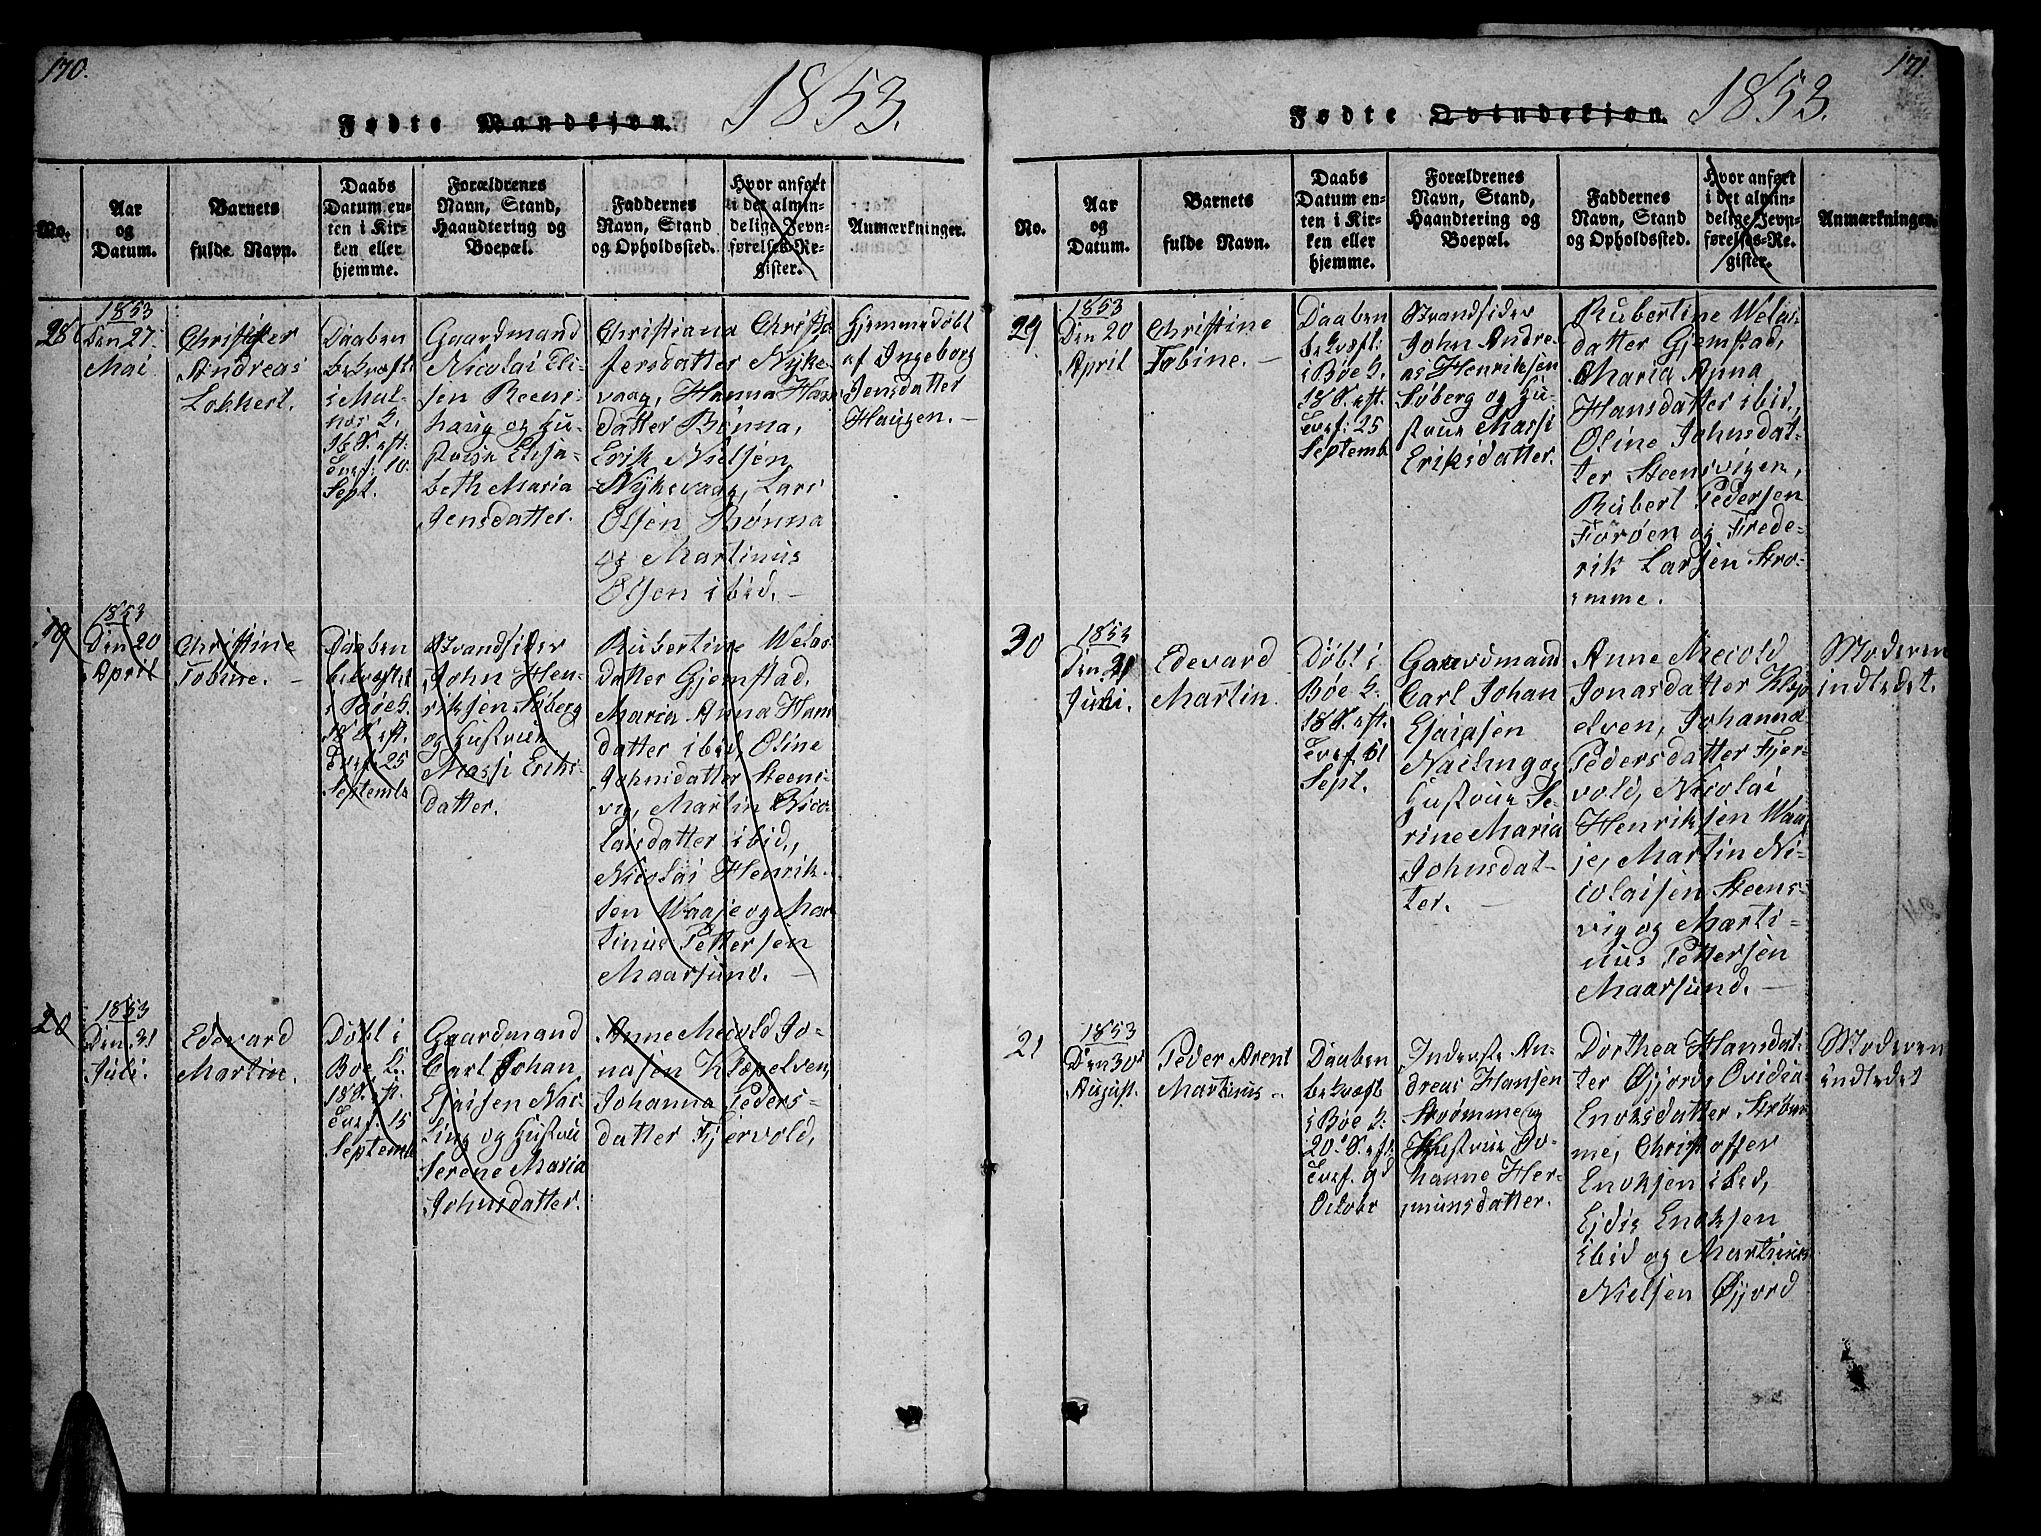 170.
Fødte Mandkjøn. 1853.
No.
Aar
og
Datum.
Barnets
fulde Navn.
Daabs
Datum en-
ten i Kir-
ken eller
hjemme.
Forældrenes
Navn, Stand,
Haandtering og
Boepæl.
Faddernes
Navn, Stand
og Opholdssted.
Hvor anført
i det almin-
delige Jevn-
førelses-Re-
gister.
Anmærkninger.
28
1853
Den 27
Mai
Christister
Andreas
Lokkert.
Daaben
bekræft:
i Mal-
nes K.
16 S. eft.
Tref: 10.
Sept.
Gaardmand
Nicolai Eli-
sen Reens-
haug og Hu-
strue Elisa-
beth Maria
Jensdatter.
Christiana Christo-
fersdatter Nyke-
vaag, Hanna Hans-
datter Rønna,
Erik Nielsen
Nyksvaag, Lars
Olsen Rønna
og Martinus
Olsen ibid. –
Hjemmedøbt
af Ingeborg
Jensdatter
Haugen. –
19
1853
Den 20
April
Christine
Tobine. –
Daaben
bekræftet
i Bøe K.
18 S. eft.
Tref: 25
Septemb
Strandsider
John Hen-
riksen Søberg
og Hustrue
Massi Eriks-
datter.
Rubertine Welas-
datter Gjemstad,
Maria Anna Hans
datter ibid, Oline
Johnsdatter Steens-
vig, Martin Nico-
laisdatter ibid.,
Nicolai Henrik-
sen Waaje og Mar-
tinus Pettersen
Maarsund. –
20
1853
Den 31
Juli.
Edevard
Martin.
Døbt i
Bøe K.
18 S. eft.
Tref. 15
Septemb
Gaardmand
Carl Johan
Esaisen Nai-
ling og Hustru
Serene Maria
Johnsdatter.
Anne Mecold Jo-
nasen Klæpelven,
Johanna Peders-
datter Fjervold,
171.
Fødte Qvindekjøn. 1853.
No.
Aar
og
Datum.
Barnets
fulde Navn.
Daabs
Datum en-
ten i Kir-
ken eller
hjemme.
Forældrenes
Navn, Stand,
Haandtering og
Boepæl.
Faddernes
Navn, Stand
og Opholdssted.
Hvor anført
i det almin-
delige Jevn-
førelses-Re-
gister.
Anmærkninger.
29
1853
Den 20
April
Christine
Tobine. –
Daaben
bekræft:
i Bøe K.
18 S. eft.
Tref: 25
Septemb
Strandsider
John Andre-
as Henriksen
Søberg og Hu-
strue Massi
Eriksdatter.
Rubertine Welas-
datter Gjemstad,
Maria Anna
Hansdatter ibid.,
Oline Johnsdat-
ter Steensvigen,
Rubert Pedersen
Forøen og Frede-
rik Larsen Stro-
mme.
30
1853
Den 31
Juli.
Edevard
Martin.
Døbt i
Bøe K.
18 S. eft.
Tref.
Sept.
Gaardmand
Carl Johan
Esaiasen
Nailing og
Hustrue Se-
rine Maria
Johnsdat-
ter. –
Anne Mecold
Jonasdatter Klæp
elven, Johanna
Pedersdatter Fjer-
vold, Nicolai
Henriksen Waa-
je, Martin Ni-
colaisen Steens-
vig og Marti-
nus Pettersen
Maarsund. –
Moderen
indledet.
21
1853
Den 30
August.
Peder Arent
Martinus –
Daaben
bekræft
i Bøe K.
20 S. eft.
Tref. 9d
October
Inderste An-
dreas Hansen
Strømme og
Hustrue Jo-
hanne Her-
munsdatter.
Dorthea Hansdat-
ter Øjjord, Ovidia
Enoksdatter Strøm-
me, Christoffer
Enoksen ibid,
Ejdis Enoksen
ibid og Martinus
Nielsen Øjjord
Moderen
indledet